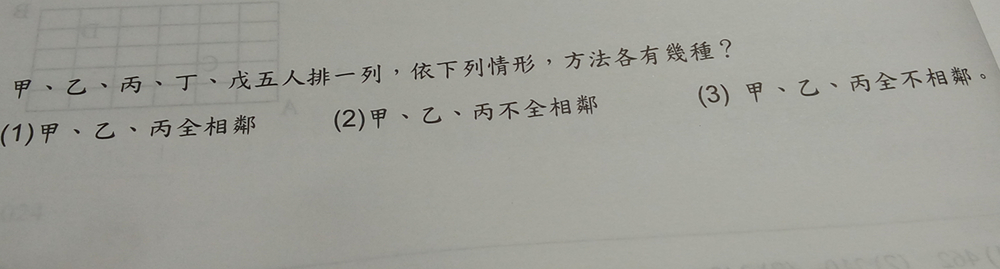 甲、乙、丙、丁、戊五人排一列，依下列情形，方法各有幾種？
(1)甲、乙、丙全相鄰 (2)甲、乙、丙不全相鄰 (3) 甲、乙、丙全不相鄰。